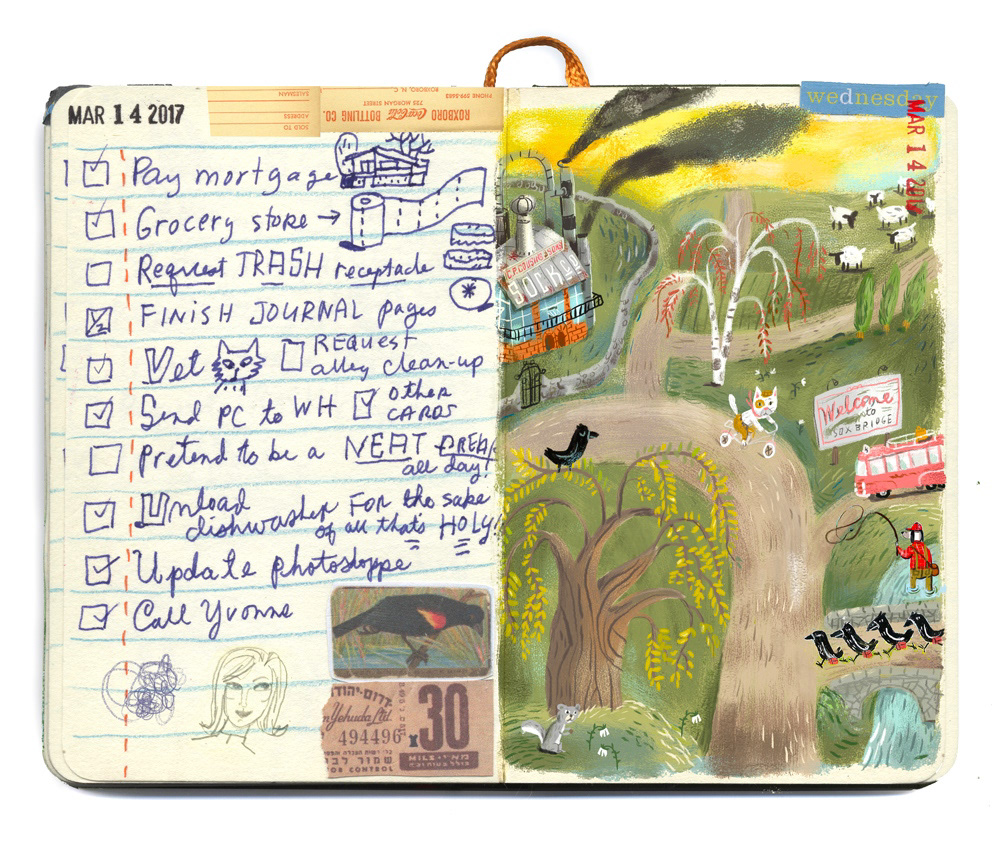 MAR 14 2017
SALESMAN
ADDRESS
SOLD TO
ROXBORO Coca-Cola BOTTLING CO.
725 MORGAN STREET
PHONE 599-5683
ROXBORO, N. C.
Pay mortgage
Grocery store →
Request TRASH receptacle
FINISH JOURNAL pages
Vet
REquest
alley clean-up
Send PC to WH
OtHer
CARDS
Pretend to be a NEAT
all day!
Unload
dishwasher For the sake
of all that's HOLY!
Update photoshoppe
Call Yvonne
Yehuda Ltd.
494496
30
MILS
FOR CONTROL
wednesday
MAR 14 2017
Welcome
to